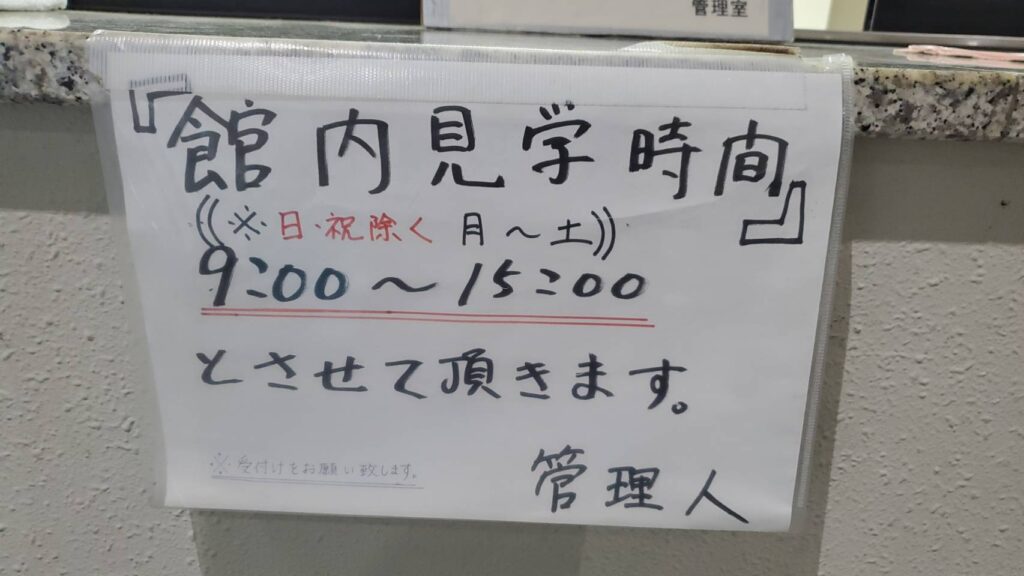 管理室
『館内見学時間』
((※日・祝除く 月〜土))
9:00〜15:00
とさせて頂きます。
※受付けをお願い致します。
管理人